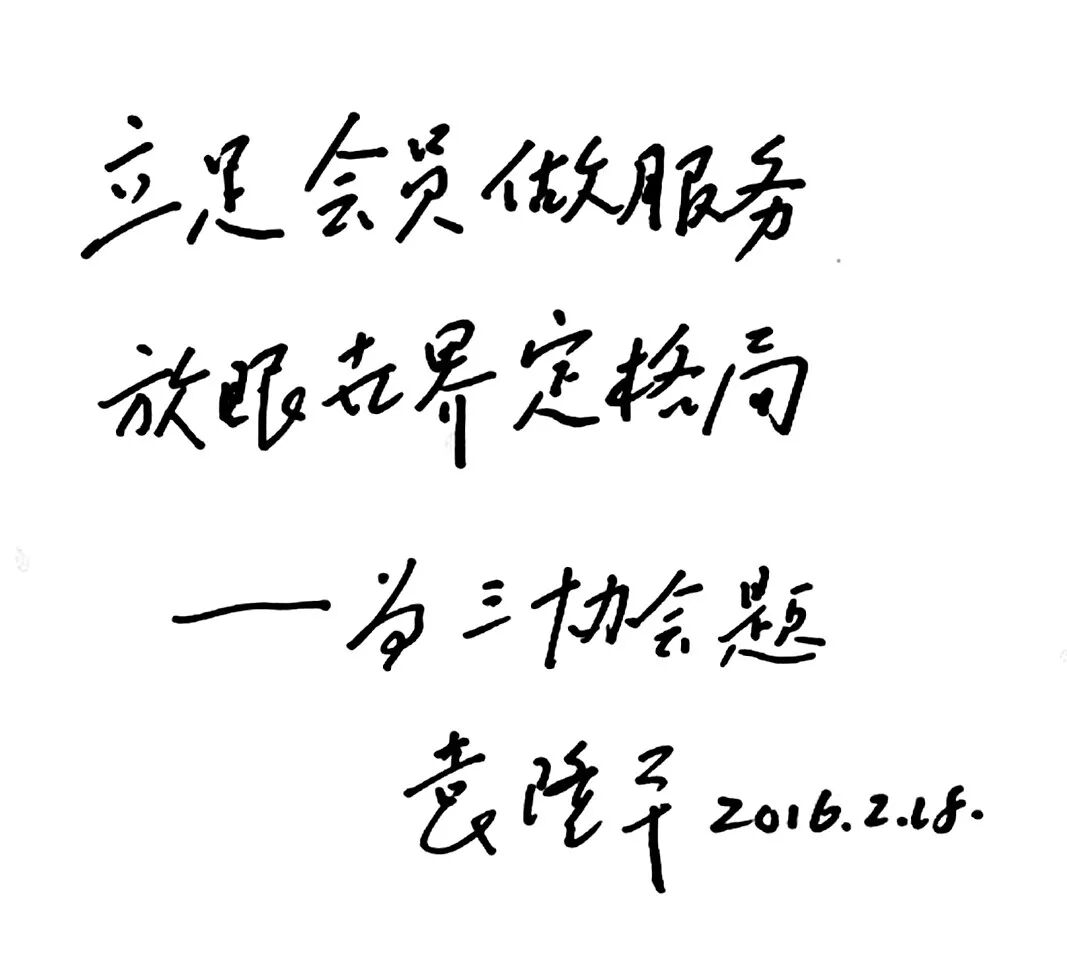 立足会员做服务
放眼世界定格局
——为三协会题
袁隆平 2016.2.18.